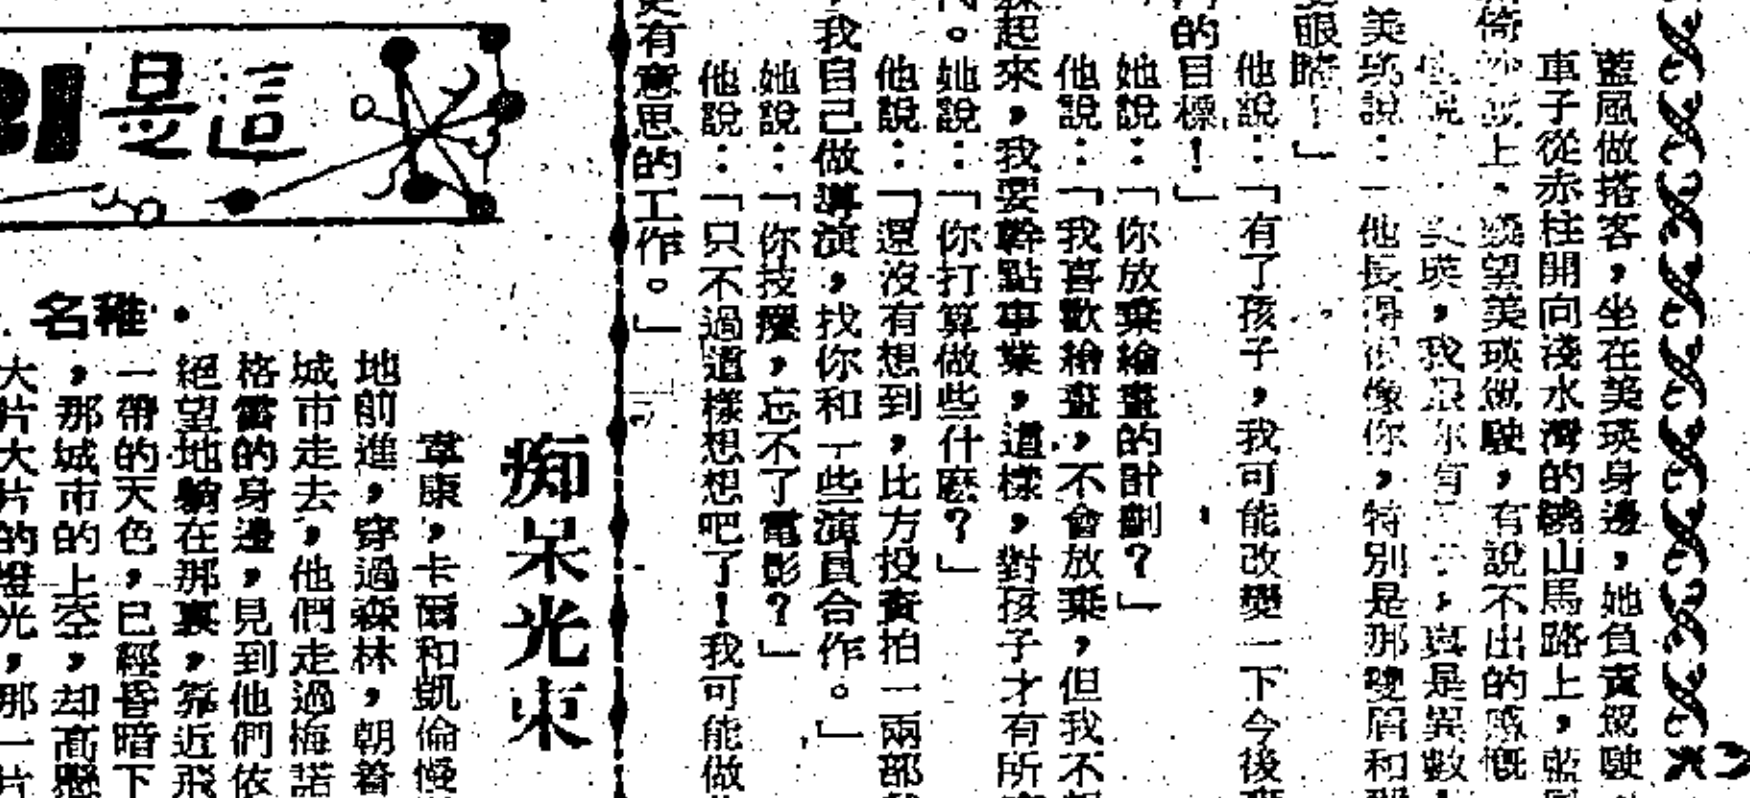 藍風做搭客，坐在美瑛身邊，她負責駕駛
車子從赤柱開向淺水灣的繞山馬路上，藍風
上，望美瑛駕駛，有說不出的感慨
他說：美瑛，我跟你有，真是異數
美瑛說：「他長得很像你，特別是那雙眉和
眼睛！」
他說：「有了孩子，我可能改變一下今後
的目標！」
她說：「你放棄繪畫的計劃？」
他說：「我喜歡繪畫，不會放棄，但我不
起來，我要幹點事業，這樣，對孩子才有所
。她說：「你打算做些什麼？」
他說：「還沒有想到，比方投資拍一兩部
，我自己做導演，找你和一些演員合作。」
她說：「你技癢，忘不了電影？」
他說：「只不過這樣想想吧了！我可能做
更有意思的工作。」
這是
癡呆光束
韋康，卡爾和凱倫慢
地前進，穿過森林，朝着
城市走去，他們走過梅諾
格雷的身邊，見到他們依
絕望地躺在那裏，靠近飛
一帶的天色，已經昏暗下
，那城市的上空，却高懸
大片大片的燈光，那一片
·稚名